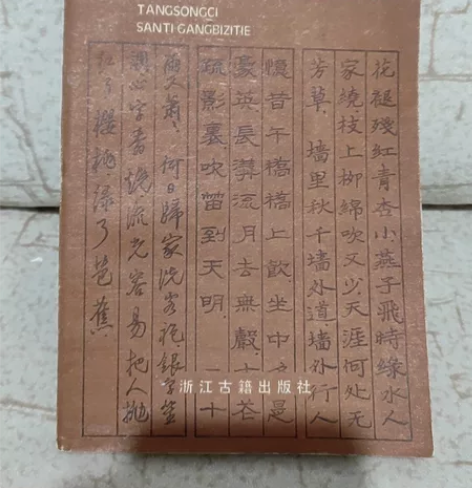 TANGSONGCI
SANTI GANGBIZITIE
花褪残红青杏小燕子飛時緑水人
家繞枝上柳綿吹又少天涯何处无
芳草 墙里秋千墙外道墙外行人
憶昔午橋橋上飲坐中
豪英長溝流月去無聲 花
疏影裏吹笛到天明 二十
何日歸家洗客袍銀字笙
調心字香燒流光容易把人抛
红了樱桃绿了芭蕉
浙江古籍出版社